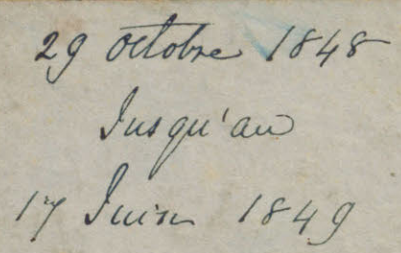 29 octobre 1848
Jusqu'au
17 Juin 1849